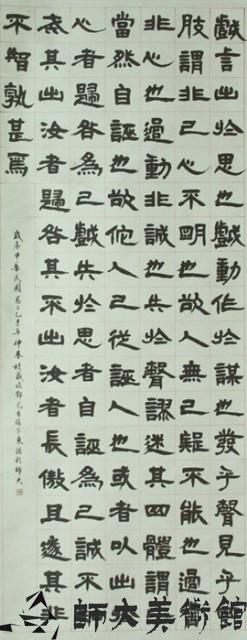 戲言出於思也戲動作於謀也發乎聲見乎四
肢謂非己心不明也欲人無己疑不能也過言
非心也過動非誠也失於聲謬迷其四體謂己
當然自誣也欲他人己從誣人也或者以出於
心者歸咎為己戲失於思者自誣為己誠不知
戒其出汝者歸咎其不出汝者長傲且遂其非
不智孰甚焉
歲序中華民國第二乙亥年仲春
東銘於師大
師大美術館